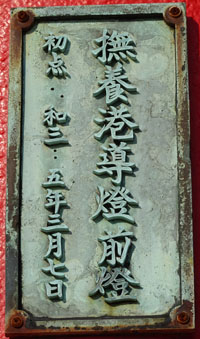 撫養巷導燈前燈
初点··和三·五年三月七日